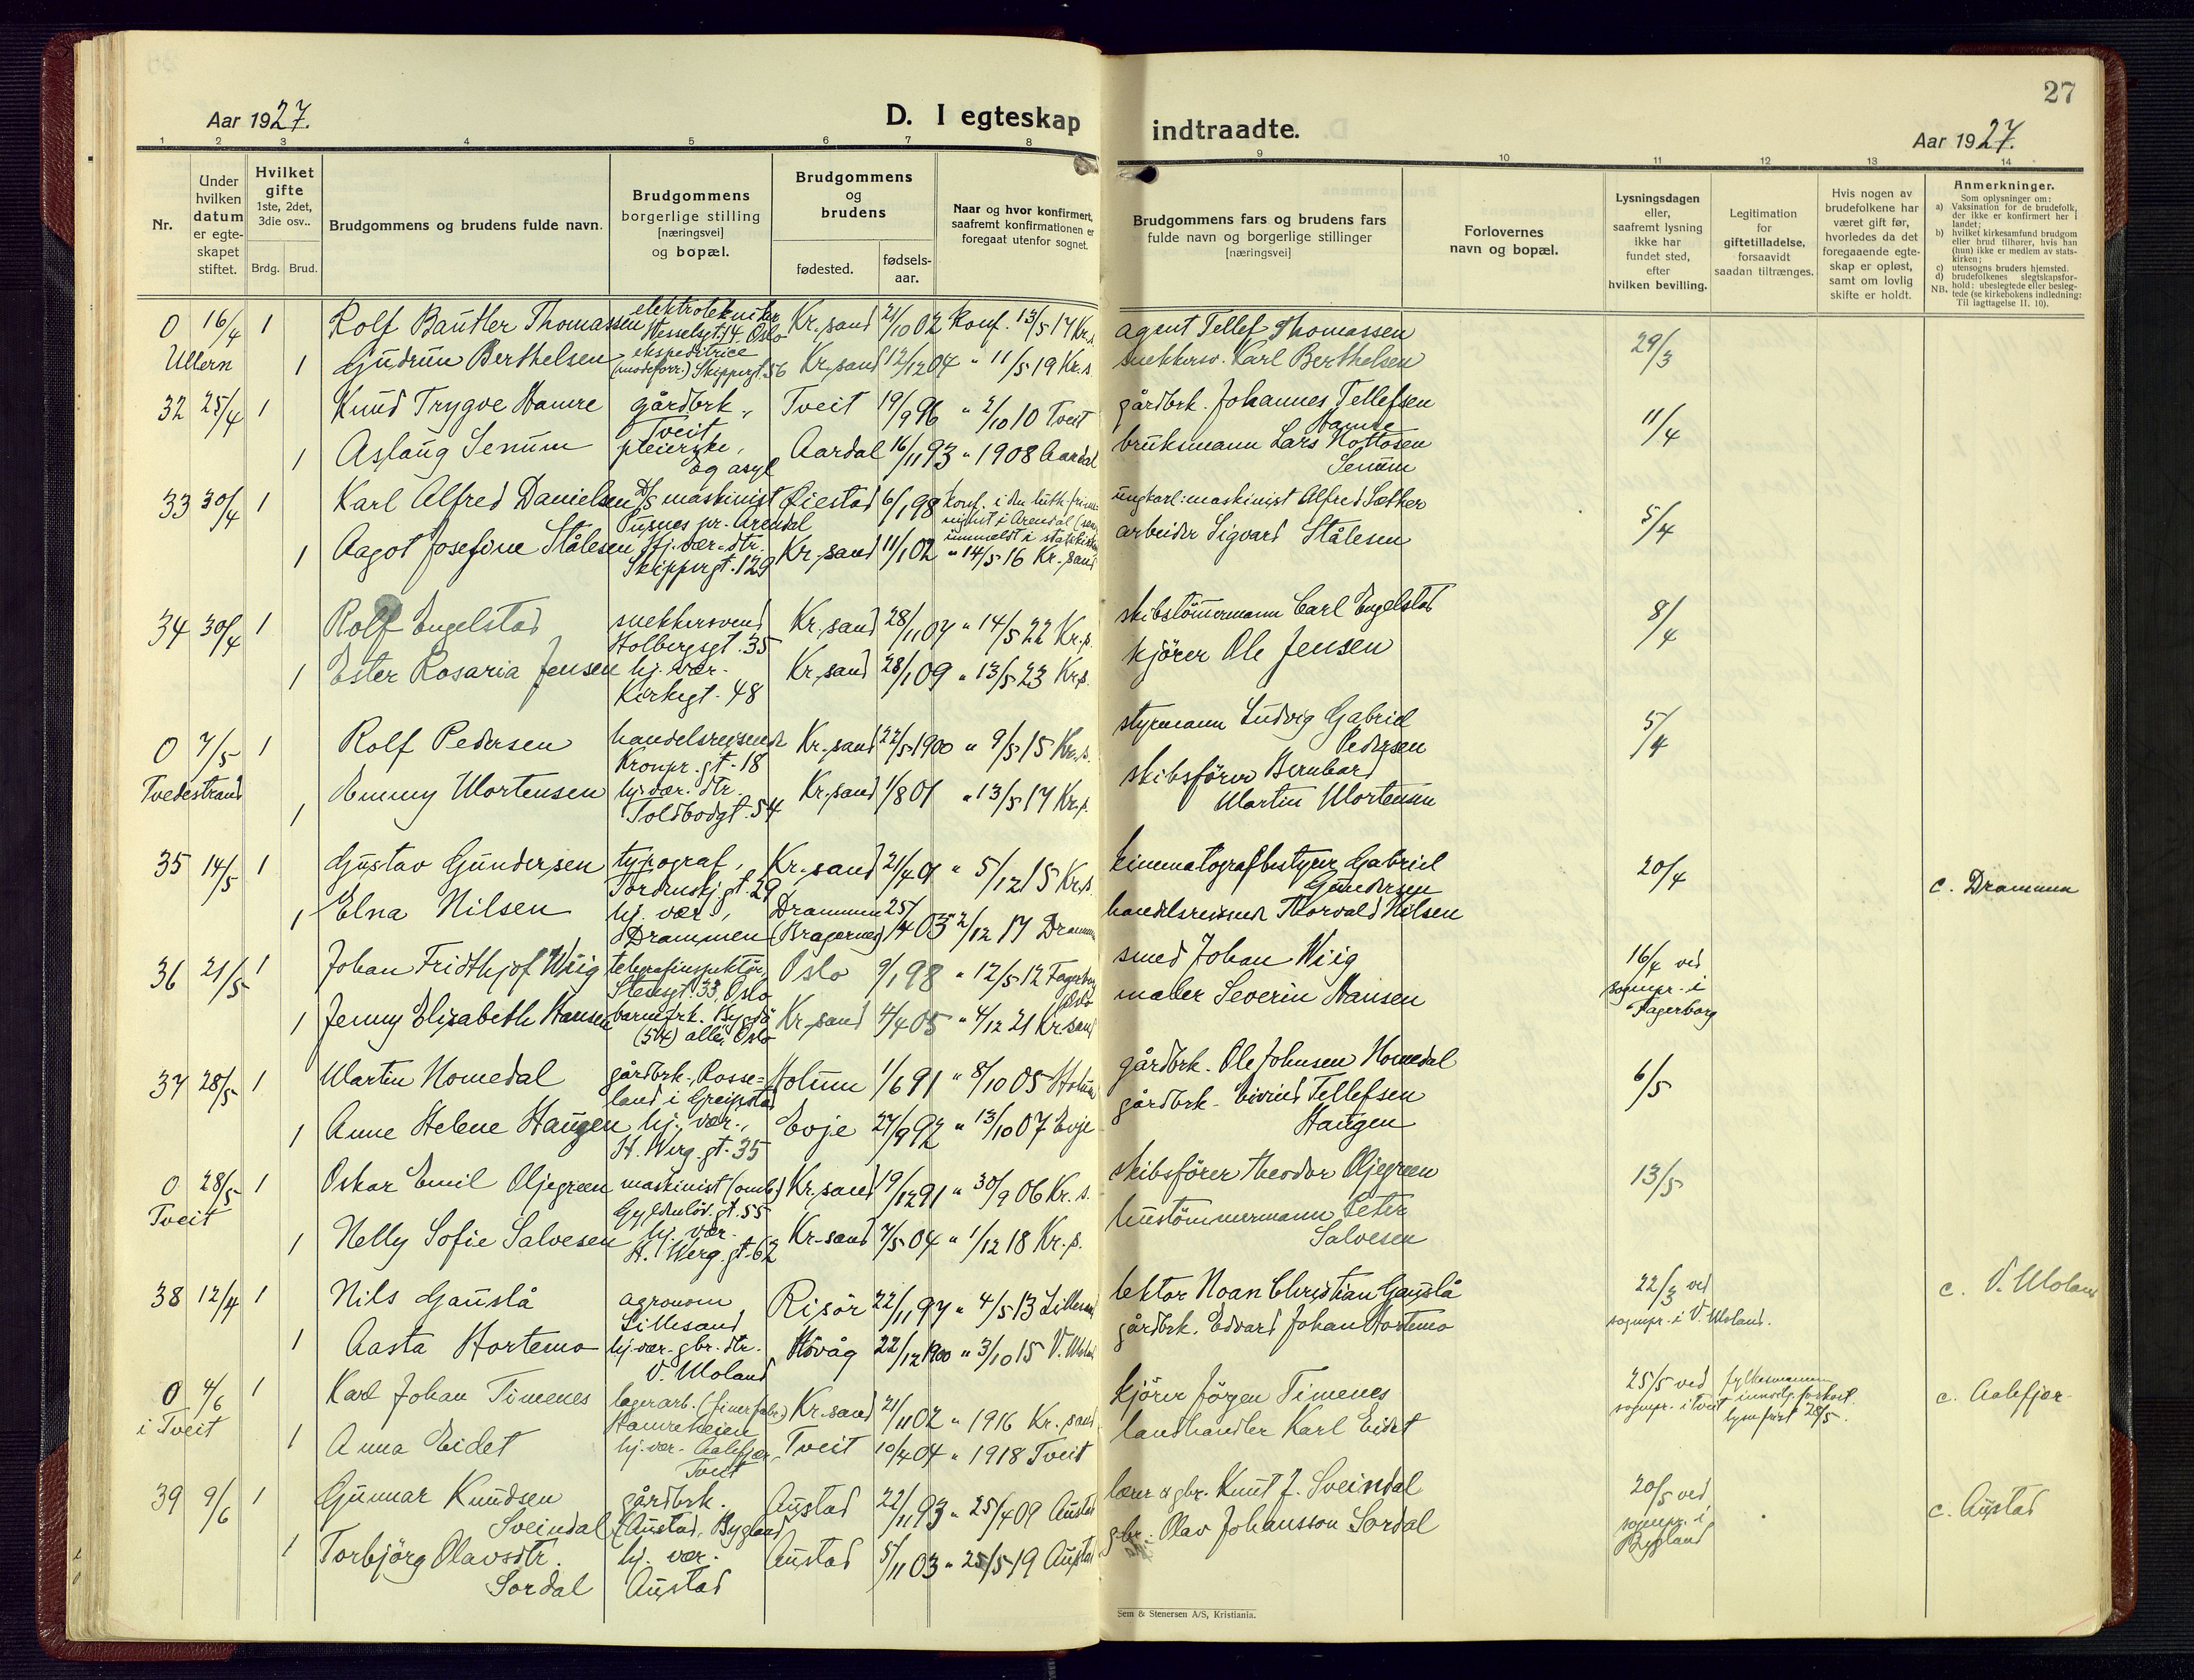 27
Aar 1927.
D. I egteskap indtraadte.
Aar 1927.
1 2 3 4 5 6 7 8 9 10 11 12 13 14
Nr.
Under hvilken datum er egte-skapet stiftet.
Hvilket gifte 1ste, 2det, 3die osv..
Brdg. Brud.
Brudgommens og brudens fulde navn.
Brudgommens borgerlige stilling [næringsvei] og bopæl.
Brudgommens og brudens
fødested.
fødsels-aar.
Naar og hvor konfirmert, saafremt konfirmationen er foregaat utenfor sognet.
Brudgommens fars og brudens fars fulde navn og borgerlige stillinger [næringsvei]
Forlovernes navn og bopæl.
Lysningsdagen eller, saafremt lysning ikke har fundet sted, efter hvilken bevilling.
Legitimation for giftetilladelse, forsaavidt saadan tiltrænges.
Hvis nogen av brudefolkene har været gift før, hvorledes da det foregaaende egte-skap er opløst, samt om lovlig skifte er holdt.
Anmerkninger.
Som oplysninger om:
a) Vaksination for de brudefolk, der ikke er konfirmert her i landet;
b) hvilket kirkesamfund brudgom eller brud tilhører, hvis han (hun) ikke er medlem av stats-kirken;
c) utensogns bruders hjemsted.
d) brudefolkenes slegtskapsfor-hold: ubeslegtede eller besleg-tede (se kirkebokens indledning: Til iagttagelse II. 10).
NB.
0 16/4 1 Rolf Bautler Thomassen elektrotekniker Hesselsgt. 14. Oslo Kr.sand 21/10 02 Konf. 13/5 17 Kr.s. agent Tellef Thomassen 29/3
Ullern 1 Gudrun Berthelsen ekspeditrice (modeforr.) Skippergt. 56 Kr.sand 12/12 04 " 11/5 19 Kr.s snekkersv. Karl Berthelsen
32 25/4 1 Knud Trygve Hamre gårdbrk., Tveit Tveit 19/9 96 " 2/10 10 Tveit gårdbrk. Johannes Tellefsen Hamre 11/4
1 Aslaug Senum pleierske, Eg asyl Aardal 16/11 93 " 1908 Aardal bruksmann Lars Nottosen Senum
33 30/4 1 Karl Alfred Danielsen D/S maskinist Pusnes pr. Arendal Øiestad 6/1 98 konf. i den luth. frimenighet i Arendal ungkarl: maskinist Alfred Sæther 5/4
1 Aagot Josefine Stålesen Hj.vær. dtr. Skippergt. 129 Kr.sand 11/1 02 " 14/5 16 Kr.sand arbeider Sigvard Stålesen
34 30/4 1 Rolf Engelstad snekkersvend Holbergsgt. 35 Kr.sand 28/11 07 " 14/5 22 Kr.s. skibstömmermann Carl Engelstad 8/4
1 Ester Rosaria Jensen hj. vær. Kirkegt. 48 Kr.sand 28/1 09 " 13/5 23 Kr.s. kjörer Ole Jensen
0 7/5 1 Rolf Pedersen handelsreisende Kronpr. gt. 18 Kr.sand 22/5 1900 " 9/5 15 Kr.s. styrmann Ludvig Gabriel Pedersen 5/4
Tvedestrand 1 Emmy Mortensen hj. vær. dtr. Toldbodgt. 54 Kr.sand 1/8 01 " 13/5 17 Kr.s. skibsförer Bernhard Martin Mortensen
35 14/5 1 Gustav Gundersen typograf, Tordenskj.gt. 29 Kr.sand 21/4 01 " 5/12 15 Kr.s. kinematografbestyrer Gabriel Gundersen 20/4
1 Elna Nilsen hj. vær., Drammen Drammen (Bragernes) 25/4 03 " 2/12 17 Drammen handelsreisende Thorvald Nilsen c. Drammen
36 21/5 1 Johan Fridthjof Wiig telegrafinspektör, Stensgt. 33, Oslo Oslo 9/1 98 " 12/5 12 Fagerborg Oslo smed Johan Wiig 16/4 ved sognepr. i Fagerborg
1 Jenny Elizabeth Hansen Bygdö allé, Oslo Kr.sand 4/4 05 " 4/12 21 Kr.sand maler Severin Hansen
37 28/5 1 Martin Homedal gårdbrk., Rosseland i Greipstad Holum 1/6 91 " 8/10 05 Holum gårdbrk. Ole Johnsen Homedal 6/5
1 Anne Helene Haugen hj. vær., H. Werg. gt. 35 Evje 27/9 92 " 13/10 07 Evje gårdbrk. Eivind Tellefsen Haugen
0 28/5 1 Oskar Emil Oljegreen maskinist (omb.) Gyldenlöv. gt. 55 Kr.sand 19/12 91 " 30/9 06 Kr.s. skibsförer Theodor Oljegreen 13/5
Tveit 1 Nelly Sofie Salvesen hj. vær. H. Werg. gt. 62 Kr.sand 7/5 04 " 1/12 18 Kr.s. hustömmermann Peter Salvesen
38 12/4 1 Nils Gauslå agronom, Lillesand Risör 22/11 97 " 4/5 13 Lillesand lektor Noan Christian Gauslå 22/3 ved sognepr. i V. Moland. c. V. Moland
1 Aasta Hortemo hj. vær. gbr. dtr. V. Moland Hövåg 22/12 1900 " 3/10 15 V. Moland gårdbrk. Edvard Johan Hortemo
0 4/6 1 Karl Johan Timenes lagerarb. (finerfabr.) Hamreheien Kr.sand 21/11 02 " 1916 Kr.sand kjörer Jörgen Timenes 25/5 ved sognepr. i Tveit fylkesmannen lysn.frist 28/5. c. Aalefjær
i Tveit 1 Anna Eidet hj. vær. Aalefjær, Tveit Tveit 10/4 04 " 1918 Tveit landhandler Karl Eidet
39 9/6 1 Gunnar Knudsen Sveindal gårdbrk. (Austad, Bygland Austad 22/11 93 " 25/4 09 Austad lærer & gbr. Knut J. Sveindal 20/5 ved sognepr. i Bygland c. Austad
1 Torbjörg Olavsdtr. Sordal hj. vær. Austad Austad 5/11 03 " 25/5 19 Austad gbr. Olav Johansson Sordal
Sem & Stenersen A/S, Kristiania.